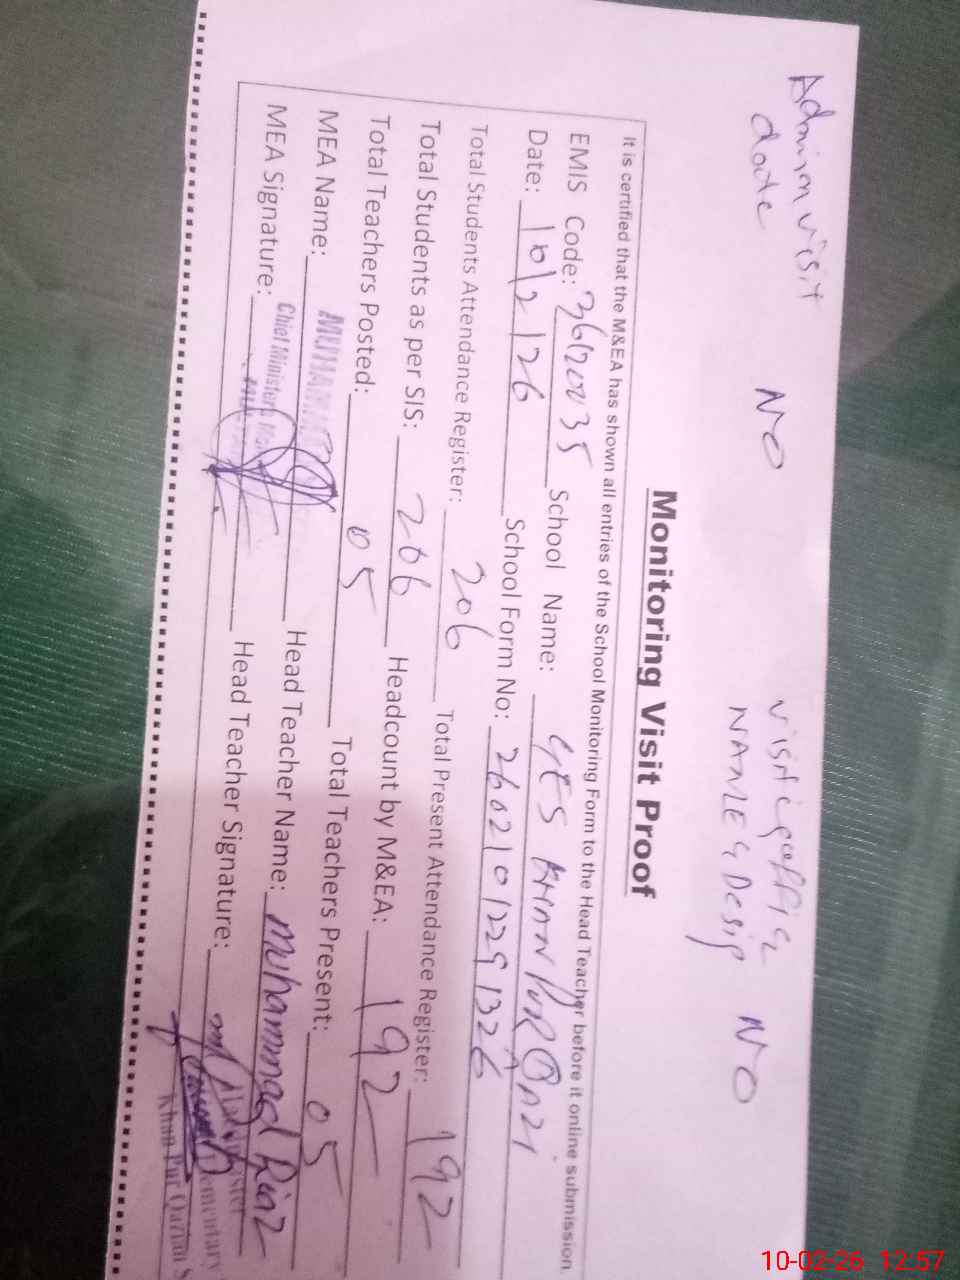 Admin visit date NO
visiting offic NAME & Desig NO
Monitoring Visit Proof
It is certified that the M&EA has shown all entries of the School Monitoring Form to the Head Teacher before it online submission.
EMIS Code: 36120035 School Name: GES KHAN PUR Qazi
Date: 10/2/26 School Form No: 26021012291326
Total Students Attendance Register: 206 Total Present Attendance Register: 192
Total Students as per SIS: 206 Headcount by M&EA: 192
Total Teachers Posted: 05 Total Teachers Present: 05
MEA Name: Head Teacher Name: Muhammad Riaz
MEA Signature: Chief Ministers Head Teacher Signature:
Khan Pur
10-02-26 12:57